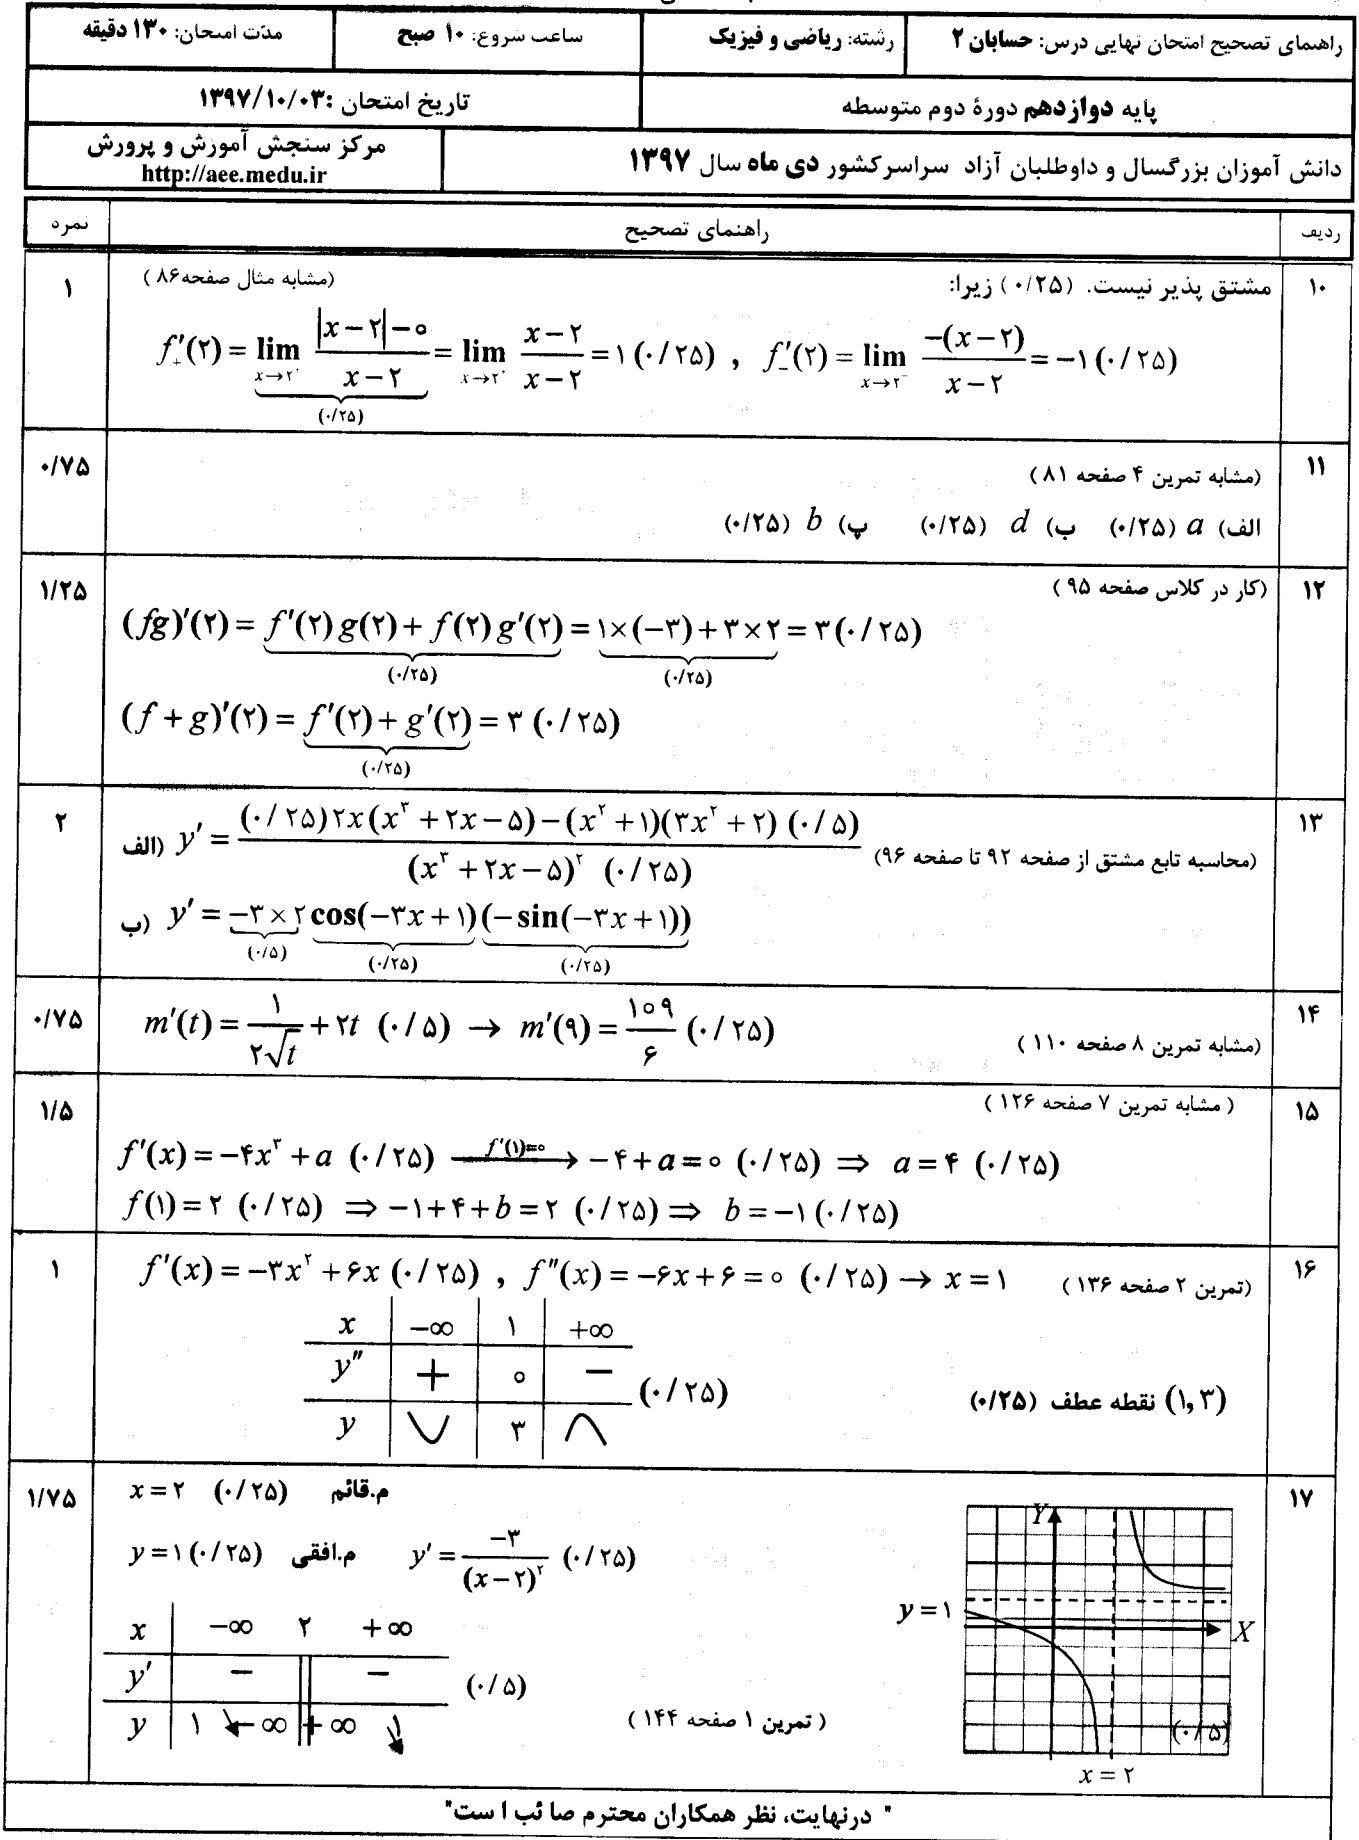 راهنمای تصحیح امتحان نهایی درس: حسابان ۲ رشته: ریاضی و فیزیک ساعت شروع: ۱۰ صبح مدّت امتحان: ۱۳۰ دقیقه
پایه دوازدهم دورهٔ دوم متوسطه تاریخ امتحان :۱۳۹۷/۱۰/۰۳
دانش آموزان بزرگسال و داوطلبان آزاد سراسرکشور دی ماه سال ۱۳۹۷ مرکز سنجش آموزش و پرورش
http://aee.medu.ir
ردیف راهنمای تصحیح نمره
۱۰ مشتق پذیر نیست. (۰/۲۵) زیرا: (مشابه مثال صفحه۸۶) ۱
f'₊(۲) = lim x→۲⁺ (|x-۲|-۰)/(x-۲) (۰/۲۵) = lim x→۲⁺ (x-۲)/(x-۲) = ۱ (۰/۲۵) , f'₋(۲) = lim x→۲⁻ (-(x-۲))/(x-۲) = -۱ (۰/۲۵)
۱۱ (مشابه تمرین ۴ صفحه ۸۱) ۰/۷۵
الف) a (۰/۲۵) ب) d (۰/۲۵) پ) b (۰/۲۵)
۱۲ (کار در کلاس صفحه ۹۵) ۱/۲۵
(fg)'(۲) = f'(۲)g(۲) + f(۲)g'(۲) (۰/۲۵) = ۱×(-۳)+۳×۲ (۰/۲۵) = ۳ (۰/۲۵)
(f+g)'(۲) = f'(۲)+g'(۲) (۰/۲۵) = ۳ (۰/۲۵)
۱۳ (محاسبه تابع مشتق از صفحه ۹۲ تا صفحه ۹۶) ۲
الف) y' = ((۰/۲۵) ۲x(x³+۲x-۵)-(x²+۱)(۳x²+۲) (۰/۵))/((x³+۲x-۵)² (۰/۲۵))
ب) y' = -۳×۲ (۰/۵) cos(-۳x+۱) (۰/۲۵) (-sin(-۳x+۱)) (۰/۲۵)
۱۴ (مشابه تمرین ۸ صفحه ۱۱۰) ۰/۷۵
m'(t) = ۱/(۲√t) + ۲t (۰/۵) → m'(۹) = ۱۰۹/۶ (۰/۲۵)
۱۵ (مشابه تمرین ۷ صفحه ۱۲۶) ۱/۵
f'(x) = -۴x³+a (۰/۲۵) f'(۱)=۰ → -۴+a=۰ (۰/۲۵) ⇒ a=۴ (۰/۲۵)
f(۱)=۲ (۰/۲۵) ⇒ -۱+۴+b=۲ (۰/۲۵) ⇒ b=-۱ (۰/۲۵)
۱۶ (تمرین ۲ صفحه ۱۳۶) ۱
f'(x) = -۳x²+۶x (۰/۲۵) , f''(x) = -۶x+۶=۰ (۰/۲۵) → x=۱
x -∞ ۱ +∞
y'' + ۰ - (۰/۲۵)
y ∪ ۳ ∩
(۱,۳) نقطه عطف (۰/۲۵)
۱۷ ۱/۷۵
x=۲ (۰/۲۵) م.قائم
y=۱ (۰/۲۵) م.افقی y' = -۳/(x-۲)² (۰/۲۵)
x -∞ ۲ +∞
y' - - (۰/۵)
y ۱ ↘ -∞ +∞ ↘ ۱
(تمرین ۱ صفحه ۱۴۴)
Y
y=۱
X
(۰/۵)
x=۲
" درنهایت، نظر همکاران محترم صا ئب ا ست"